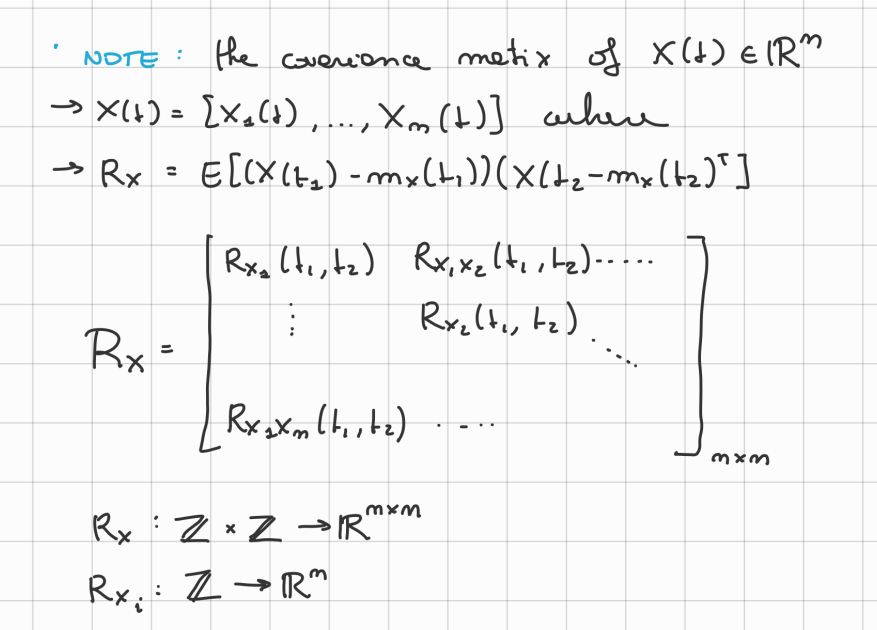 · NOTE : the covariance matix of X(t) ∈ ℝⁿ
→ X(t) = [X₁(t) , ..., Xₙ(t)] where
→ Rₓ = E[(X(t₁) - mₓ(t₁))(X(t₂ - mₓ(t₂)ᵀ]
R_X₁(t₁,t₂) R_X₁X₂(t₁,t₂) .....
⋮ R_X₂(t₁,t₂) ⋱
Rₓ =
R_X₁Xₙ(t₁,t₂) . - ..
n×n
Rₓ : ℤ × ℤ → ℝⁿˣⁿ
R_Xᵢ : ℤ → ℝⁿ